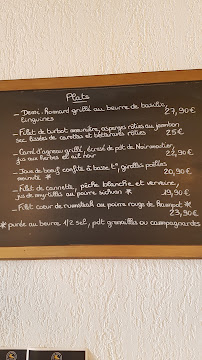 Plats
- Demi. Homard grillé au beurre de basilic,
linguines 27,90€
- Filet de turbot meunière, asperges rôties au jambon
sec, lissée de carottes et betteraves rôties 25€
- Carré d'agneau grillé, écrasé de pdt de Noirmoutier,
jus aux herbes et ail noir 22,90€
- Joue de boeuf confite à basse t°, girolles poêlées
20,90€
- Filet de cannette, pêche blanche et verveine,
jus de myrtilles au poivre 19,90€
- Filet coeur de rumsteak au poivre rouge de Kampot *
23,90€
* purée au beurre 1/2 sel, pdt grenailles ou campagnardes